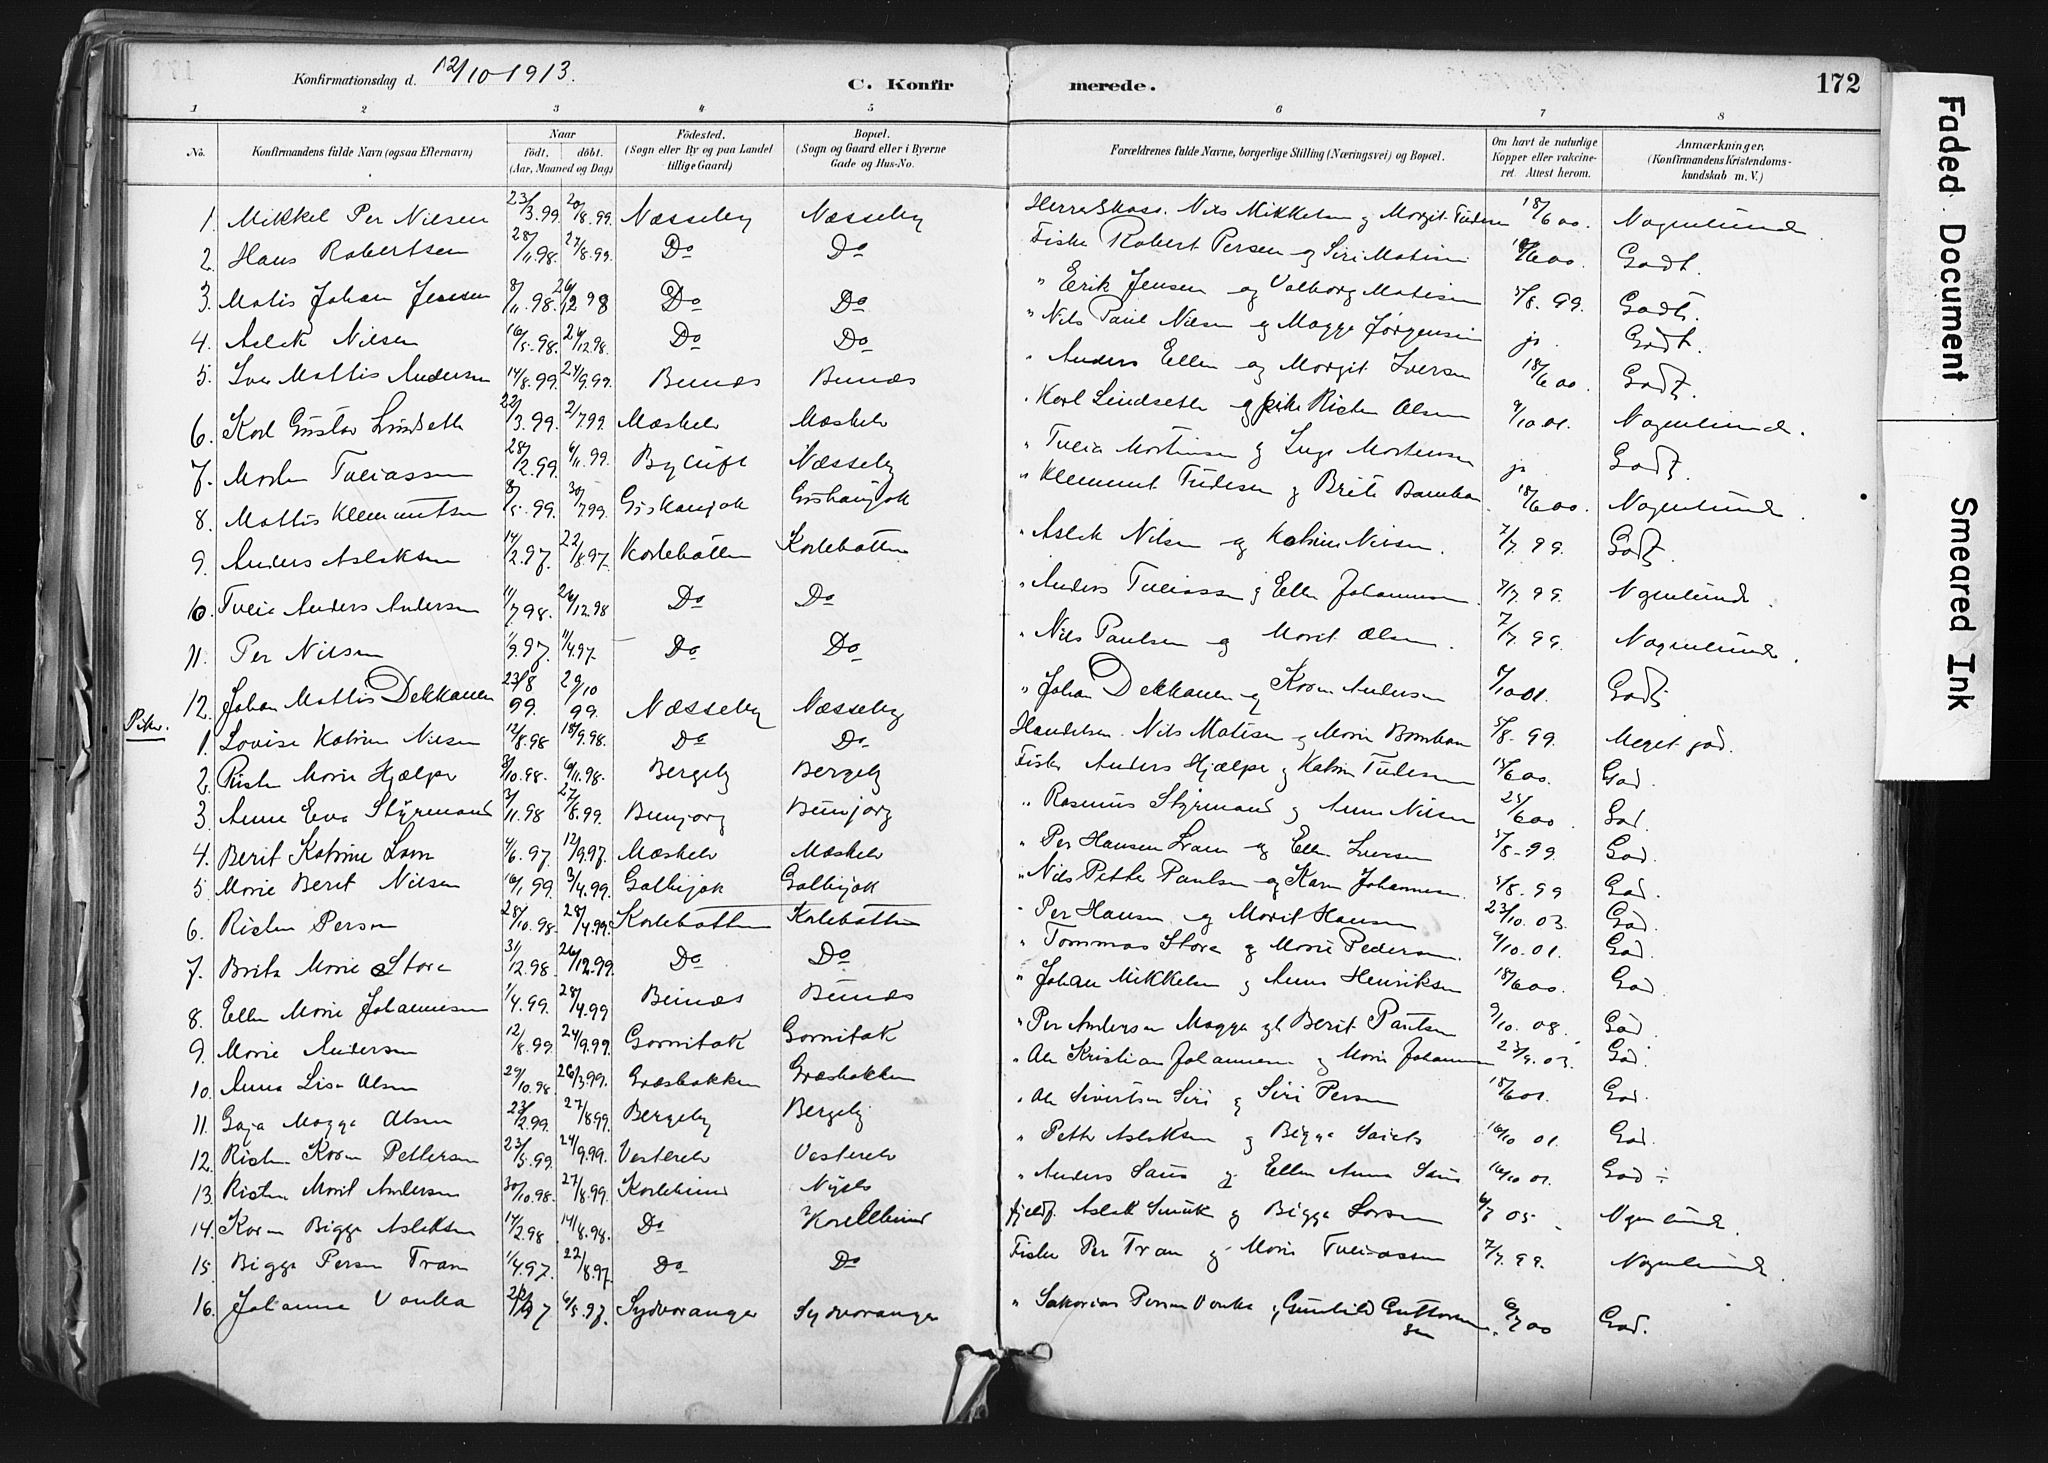 Konfirmationsdag d. 12/10 1913.
C. Konfirmerede.
172
1 2 3 4 5 6 7 8
No.
Konfirmandens fulde Navn (ogsaa Efternavn)
Naar
födt. döbt.
(Aar, Maaned og Dag)
Födested.
(Sogn eller By og paa Landet tillige Gaard)
Bopæl.
(Sogn og Gaard eller i Byerne Gade og Hus-No.
Forældrenes fulde Navne, borgerlige Stilling (Næringsvei) og Bopæl.
Om havt de naturlige Kopper eller vakcineret. Attest herom.
Anmærkninger,
(Konfirmandens Kristendomskundskab m. V.)
1. Mikkel Per Nilsen 23/3.99. 20/8.99. Næsseby Næsseby Nils Mikkelsen og 18/6 00. Nogenlunde
2. Hans Robertsen 28/11.98. 27/8.99. Do Do Fisker Robert Persen og Siri Matisen Godt.
3. Matis Johan Jensen 8/11.98. 26/12 98 Do Do " Erik Jensen og Valborg Matisen 5/8. 99. Godt.
4. Aslak Nilsen 16/5.98. 26/12.98. Do Do " Nils Paul Nilsen og Magga Jørgensen ja. Godt.
5. Iver Mattis Andersen 14/8.99. 24/9.99. Bunæs Bunæs " Anders Ellen og Margit Iversen 18/6 00. Godt.
6. Karl Gustav Lindseth 22/3.99. 2/7 99 Mæskelv Mæskelv " Karl Lindseth og Risten Olsen 9/10 01. Nogenlunde.
7. Morten Tuliassen 28/2.99. 6/11.99. Byluft Næsseby " Tulia Mortensen og Inga Mortensen ja Godt.
8. Mattis Klemmetsen 8/5.99. 30/7 99. Giskanjok Giskanjok " Klemmet Tudesen og Brita Bomban 18/6 00. Nogenlunde
9. Anders Aslaksen 14/2.97. 22/8.97. Karlebotten Karlebotten " Aslak Nilsen og Katrine Nilsen. 7/7. 99. Godt.
10. Tulia Anders Andersen 11/7 98. 26/12.98 Do Do " Anders Tuliassen og Ellen Johannesen 7/7. 99. Nogenlunde.
11. Per Nilsen 1/9.97. 11/4.97. Do Do " Nils Paulsen og Marit Olsen. 7/7. 99. Nogenlunde.
12. Johan Mattis Dekkanen 23/8 99. 29/10 99. Næsseby Næsseby " Johan Dekkanen og Karen Andersen 9/10 01. Godt
Piker.
1. Lovise Katrine Nilsen 12/8.98 18/9.98. Do Do Nils Matisen og Marie Bomban 5/8. 99. Meget god.
2. Risten Marie Hjælpe 8/10.98. 6/11.98. Bergeby Bergeby Fisker Anders Hjælpe og Katrine Tudesen 18/6 00. God.
3. Anne Eva Styrmand 3/11.98 27/8.99. Bunjarg Bunjarg " Rasmus Styrmand og Anne Nilsen 25/6 00. God.
4. Berit Katrine Tran 4/6.97 12/9.97. Mæskelv Mæskelv " Per Hansen Tran og Ellen Iversen 5/8.99. God.
5. Marie Berit Nilsen 16/1.99 3/4.99. Galbijok Galbijok " Nils Petter Paulsen og Karen Johannesen 5/8. 99 God.
6. Risten Persen 28/10.98. 28/4.99. Karlebotten Karlebotten " Per Hansen og Marit Hansen 23/10. 03. God.
7. Brita Marie Store 31/12.98. 26/12.99. Do Do " Tommas Store og Marie Pedersen. 9/10. 01. God.
8. Ellen Marie Johannesen 1/4.99. 28/4.99 Bunæs Bunæs " Johan Mikkelsen og Anna Henriksen 18/6 00. God.
9. Marie Andersen 12/8.99 24/9.99. Gornitak Gornitak " Per Andersen Magga og Berit Paulsen 9/10. 08. God
10. Anna Lisa Olsen 29/10.98. 26/3.99. Græsbakken Græsbakken " Ole Kristian Johannesen og Marie Johannesen 23/9. 03. God
11. Gaja Magga Olsen 23/2.99. 27/8.99. Bergeby Bergeby " Ole Sivertsen Siri og Siri Persen 18/6 01. God.
12. Risten Karen Pettersen 23/5.99. 24/9.99. Vesterelv Vesterelv " Petter Aslaksen og Bigga 16/10 01. God.
13. Risten Marit Andersen 30/10.98. 27/8.99. Nyelv " Anders Saus og Ellen Anna Saus 16/10 01. God
14. Karen Bigga Aslaksen 17/2.98 14/8.98. Do fjeldf. Aslak Smuk og Bigga Larsen 6/7 05. Nogenlunde.
15. Bigga Persen Tran 1/4.97. 22/8.97. Do Do Fisker Per Tran og Marie Tuliassen 7/7. 99. Nogenlunde.
16. Johanne Vonka 6/5.97. Sydvaranger Sydvaranger " Sakarias Persen Vonka og Gunhild Guttormsen 6/7 00 God.
Faded Document
Smeared Ink